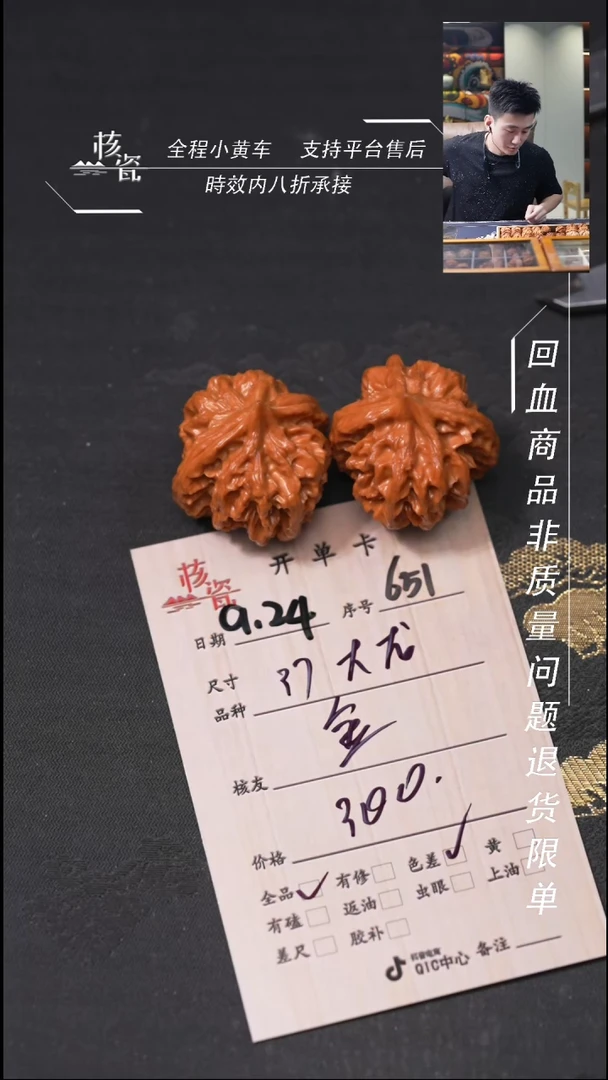 核瓷
全程小黄车 支持平台售后
時效内八折承接
回血商品非质量问题退货限单
核瓷
开单卡
日期 9.24. 序号 651
尺寸 37大尤
品种
金
核友
300.
价格
全品 有修 色差 黄
有磕 返油 虫眼 上油
差尺 胶补
抖音电商
QIC中心 备注